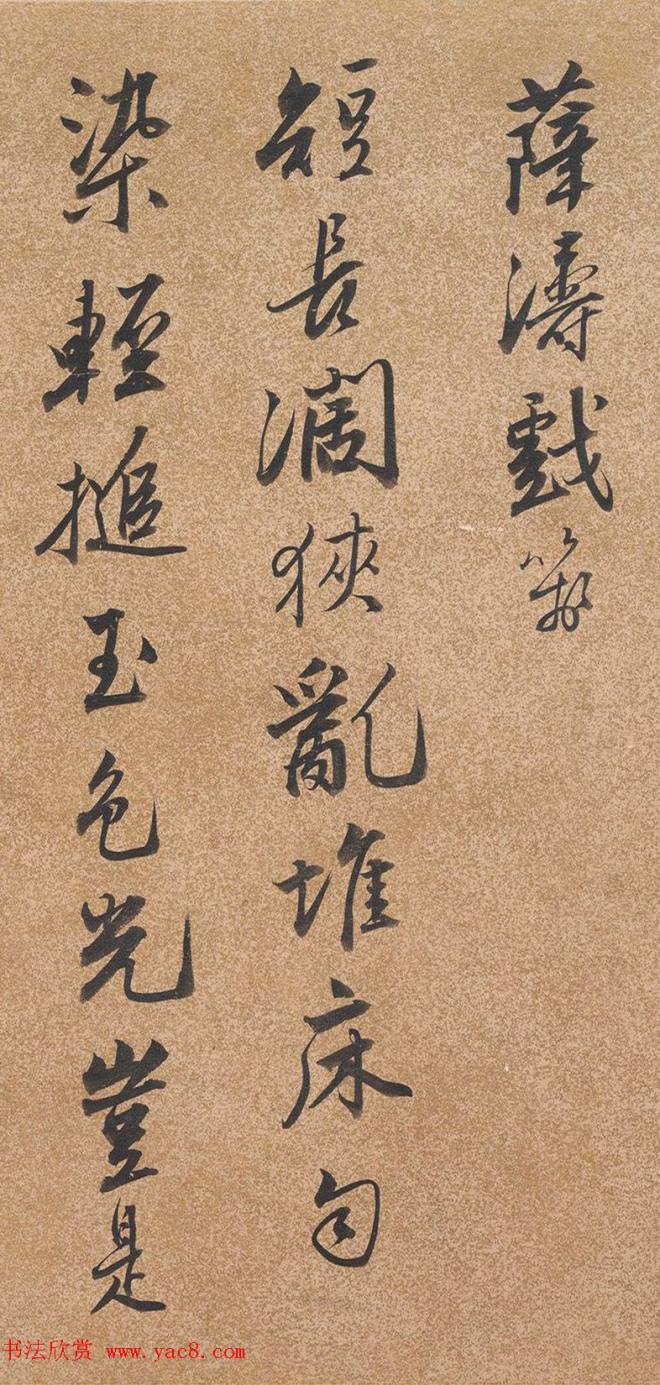 薛濤戲箋
短長濶狹亂堆床匀
染輕搥玉色光豈是
书法欣赏 www.yac8.com